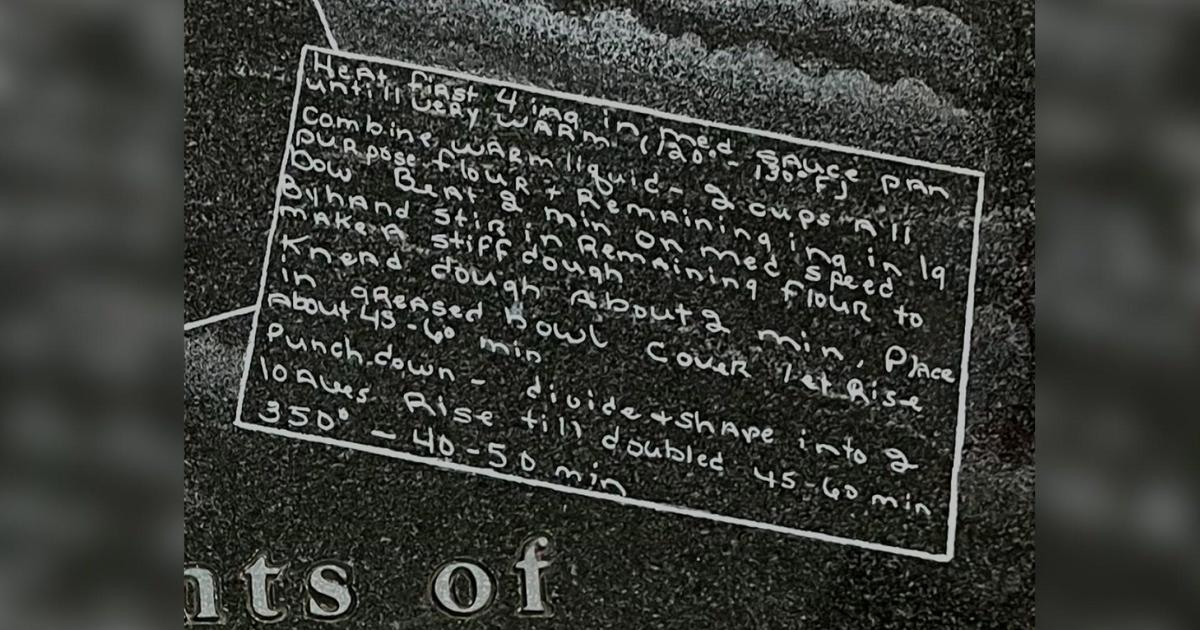 Heat first 4 ing in med sauce pan
untill very warm (120° - 130° F)
Combine warm liquid - 2 cups All
purpose flour + Remaining ing in lg
bow Beat 2 min on med speed.
By hand stir in Remaining flour to
make a stiff dough
Knead dough About 2 min. Place
in greased bowl cover let Rise
About 45-60 min
Punch down - divide + shape into 2
loaves Rise till doubled 45-60 min
350° - 40-50 min
nts of